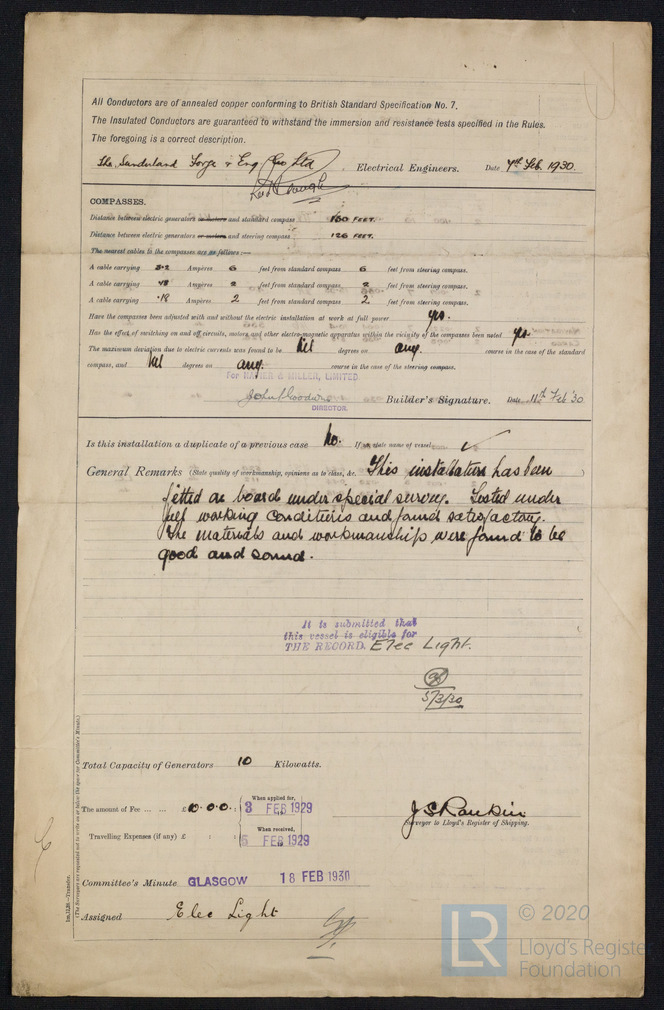 All Conductors are of annealed copper conforming to British Standard Specification No. 7.
The Insulated Conductors are guaranteed to withstand the immersion and resistance tests specified in the Rules.
The foregoing is a correct description.
The Sunderland Forge & Eng Co Ltd Electrical Engineers. Date 7th Feb. 1930.
COMPASSES.
Distance between electric generators or motors and standard compass 130 FEET.
Distance between electric generators or motors and steering compass 126 FEET.
The nearest cables to the compasses are as follows:—
A cable carrying 3.2 Ampères 6 feet from standard compass 6 feet from steering compass.
A cable carrying .18 Ampères 2 feet from standard compass 2 feet from steering compass.
A cable carrying .18 Ampères 2 feet from standard compass 2 feet from steering compass.
Have the compasses been adjusted with and without the electric installation at work at full power yes.
Has the effect of switching on and off circuits, motors, and other electro-magnetic apparatus within the vicinity of the compasses been noted yes
The maximum deviation due to electric currents was found to be Nil degrees on any. course in the case of the standard
compass, and Nil degrees on any. course in the case of the steering compass.
For NAPIER & MILLER, LIMITED.
Builder's Signature. Date 11th Feb '30
DIRECTOR.
Is this installation a duplicate of a previous case No. If so, state name of vessel ✓
General Remarks (State quality of workmanship, opinions as to class, &c. This installation has been
fitted on board under special survey. Tested under
full working conditions and found satisfactory.
The materials and workmanship were found to be
good and sound.
It is submitted that
this vessel is eligible for
THE RECORD. Elec Light.
5/3/30
Total Capacity of Generators 10 Kilowatts.
The amount of Fee ... ... £10.0.0. : When applied for, 3 FEB 1929
J S Rankin
Surveyor to Lloyd's Register of Shipping.
Travelling Expenses (if any) £ : : When received, 5 FEB 1929
Committee's Minute GLASGOW 18 FEB 1930
Assigned Elec Light
Im.11.28.—Transfer.
(The Surveyors are requested not to write on or below the space for Committee's Minute.)
LR © 2020
Lloyd's Register
Foundation